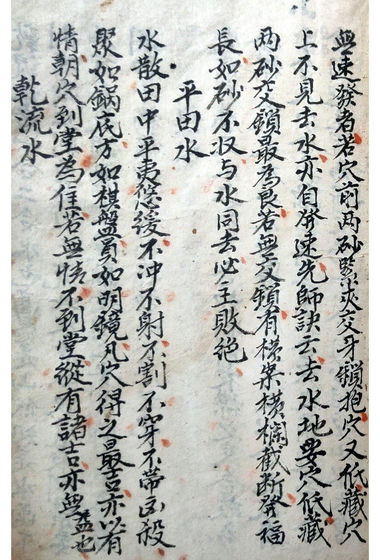 無速發者若穴前两砂緊夾交牙鎖抱穴又低藏穴
上不見去水亦自發速先師訣云去水地要穴低藏
两砂交鎖最為良若無交鎖有橫案橫攔截斷發福
長如砂不収与水同去必主敗絶
平田水
水散田中平夷悠緩不沖不射不割不穿不帶凶殺
聚如鍋底方如棋盤員如明鏡凡穴得之最吉亦以有
情朝穴到堂為佳若無情不到堂縱有諸吉亦無益也
乾流水